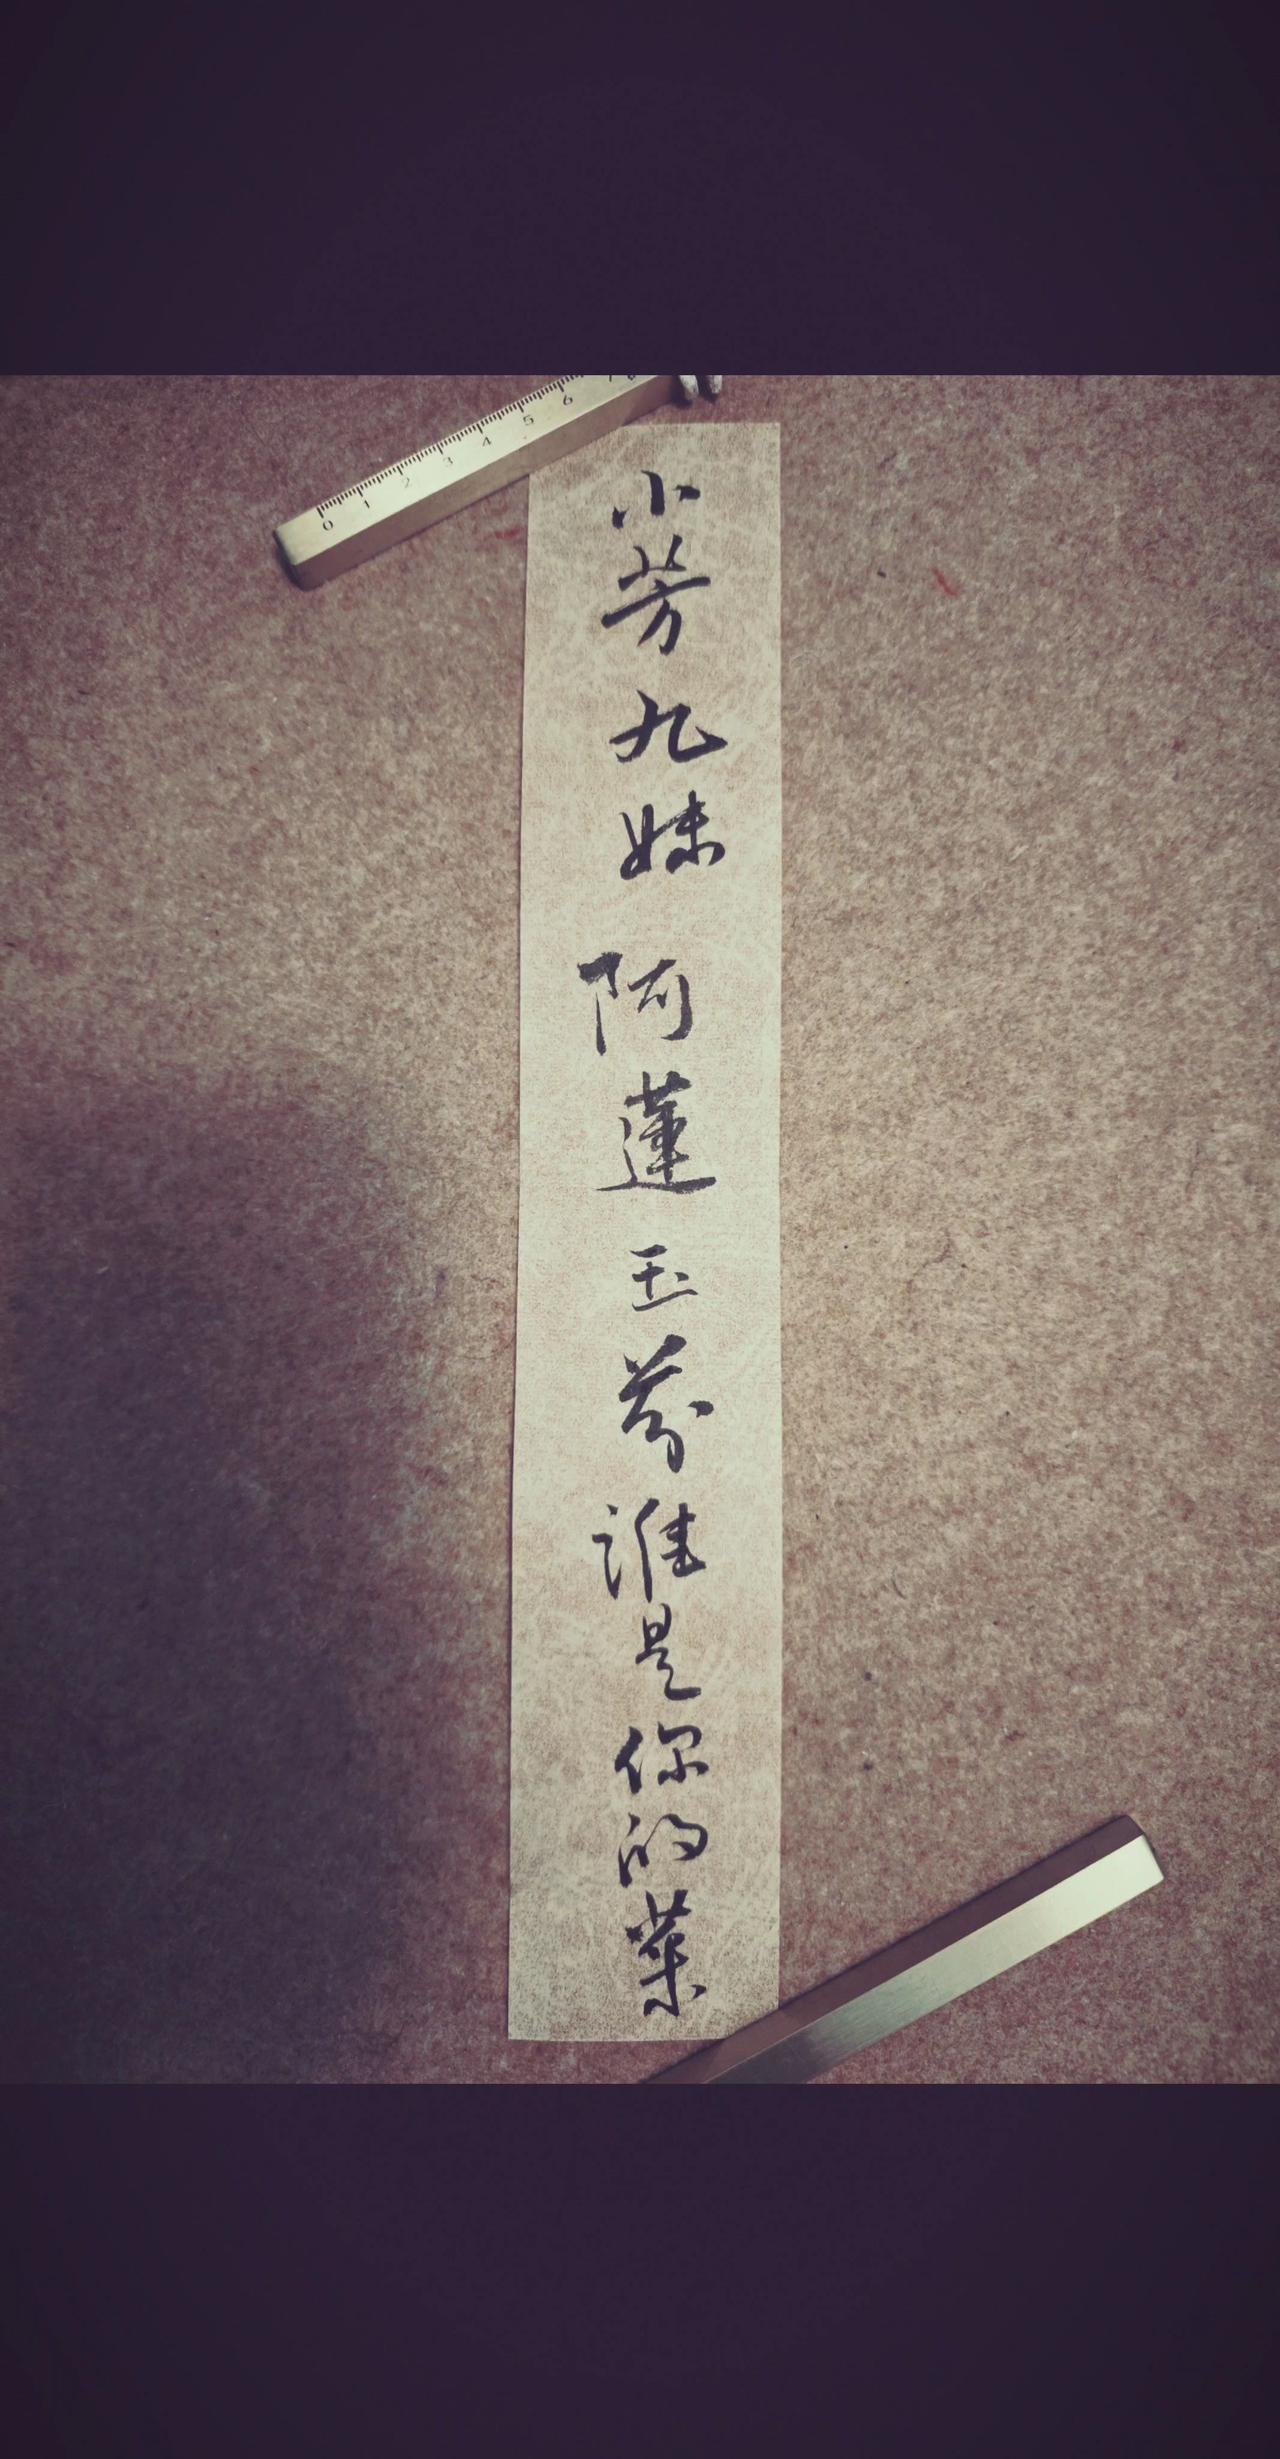 小芳 九妹 阿蓮 玉芬 誰是你的菜
0 1 2 3 4 5 6